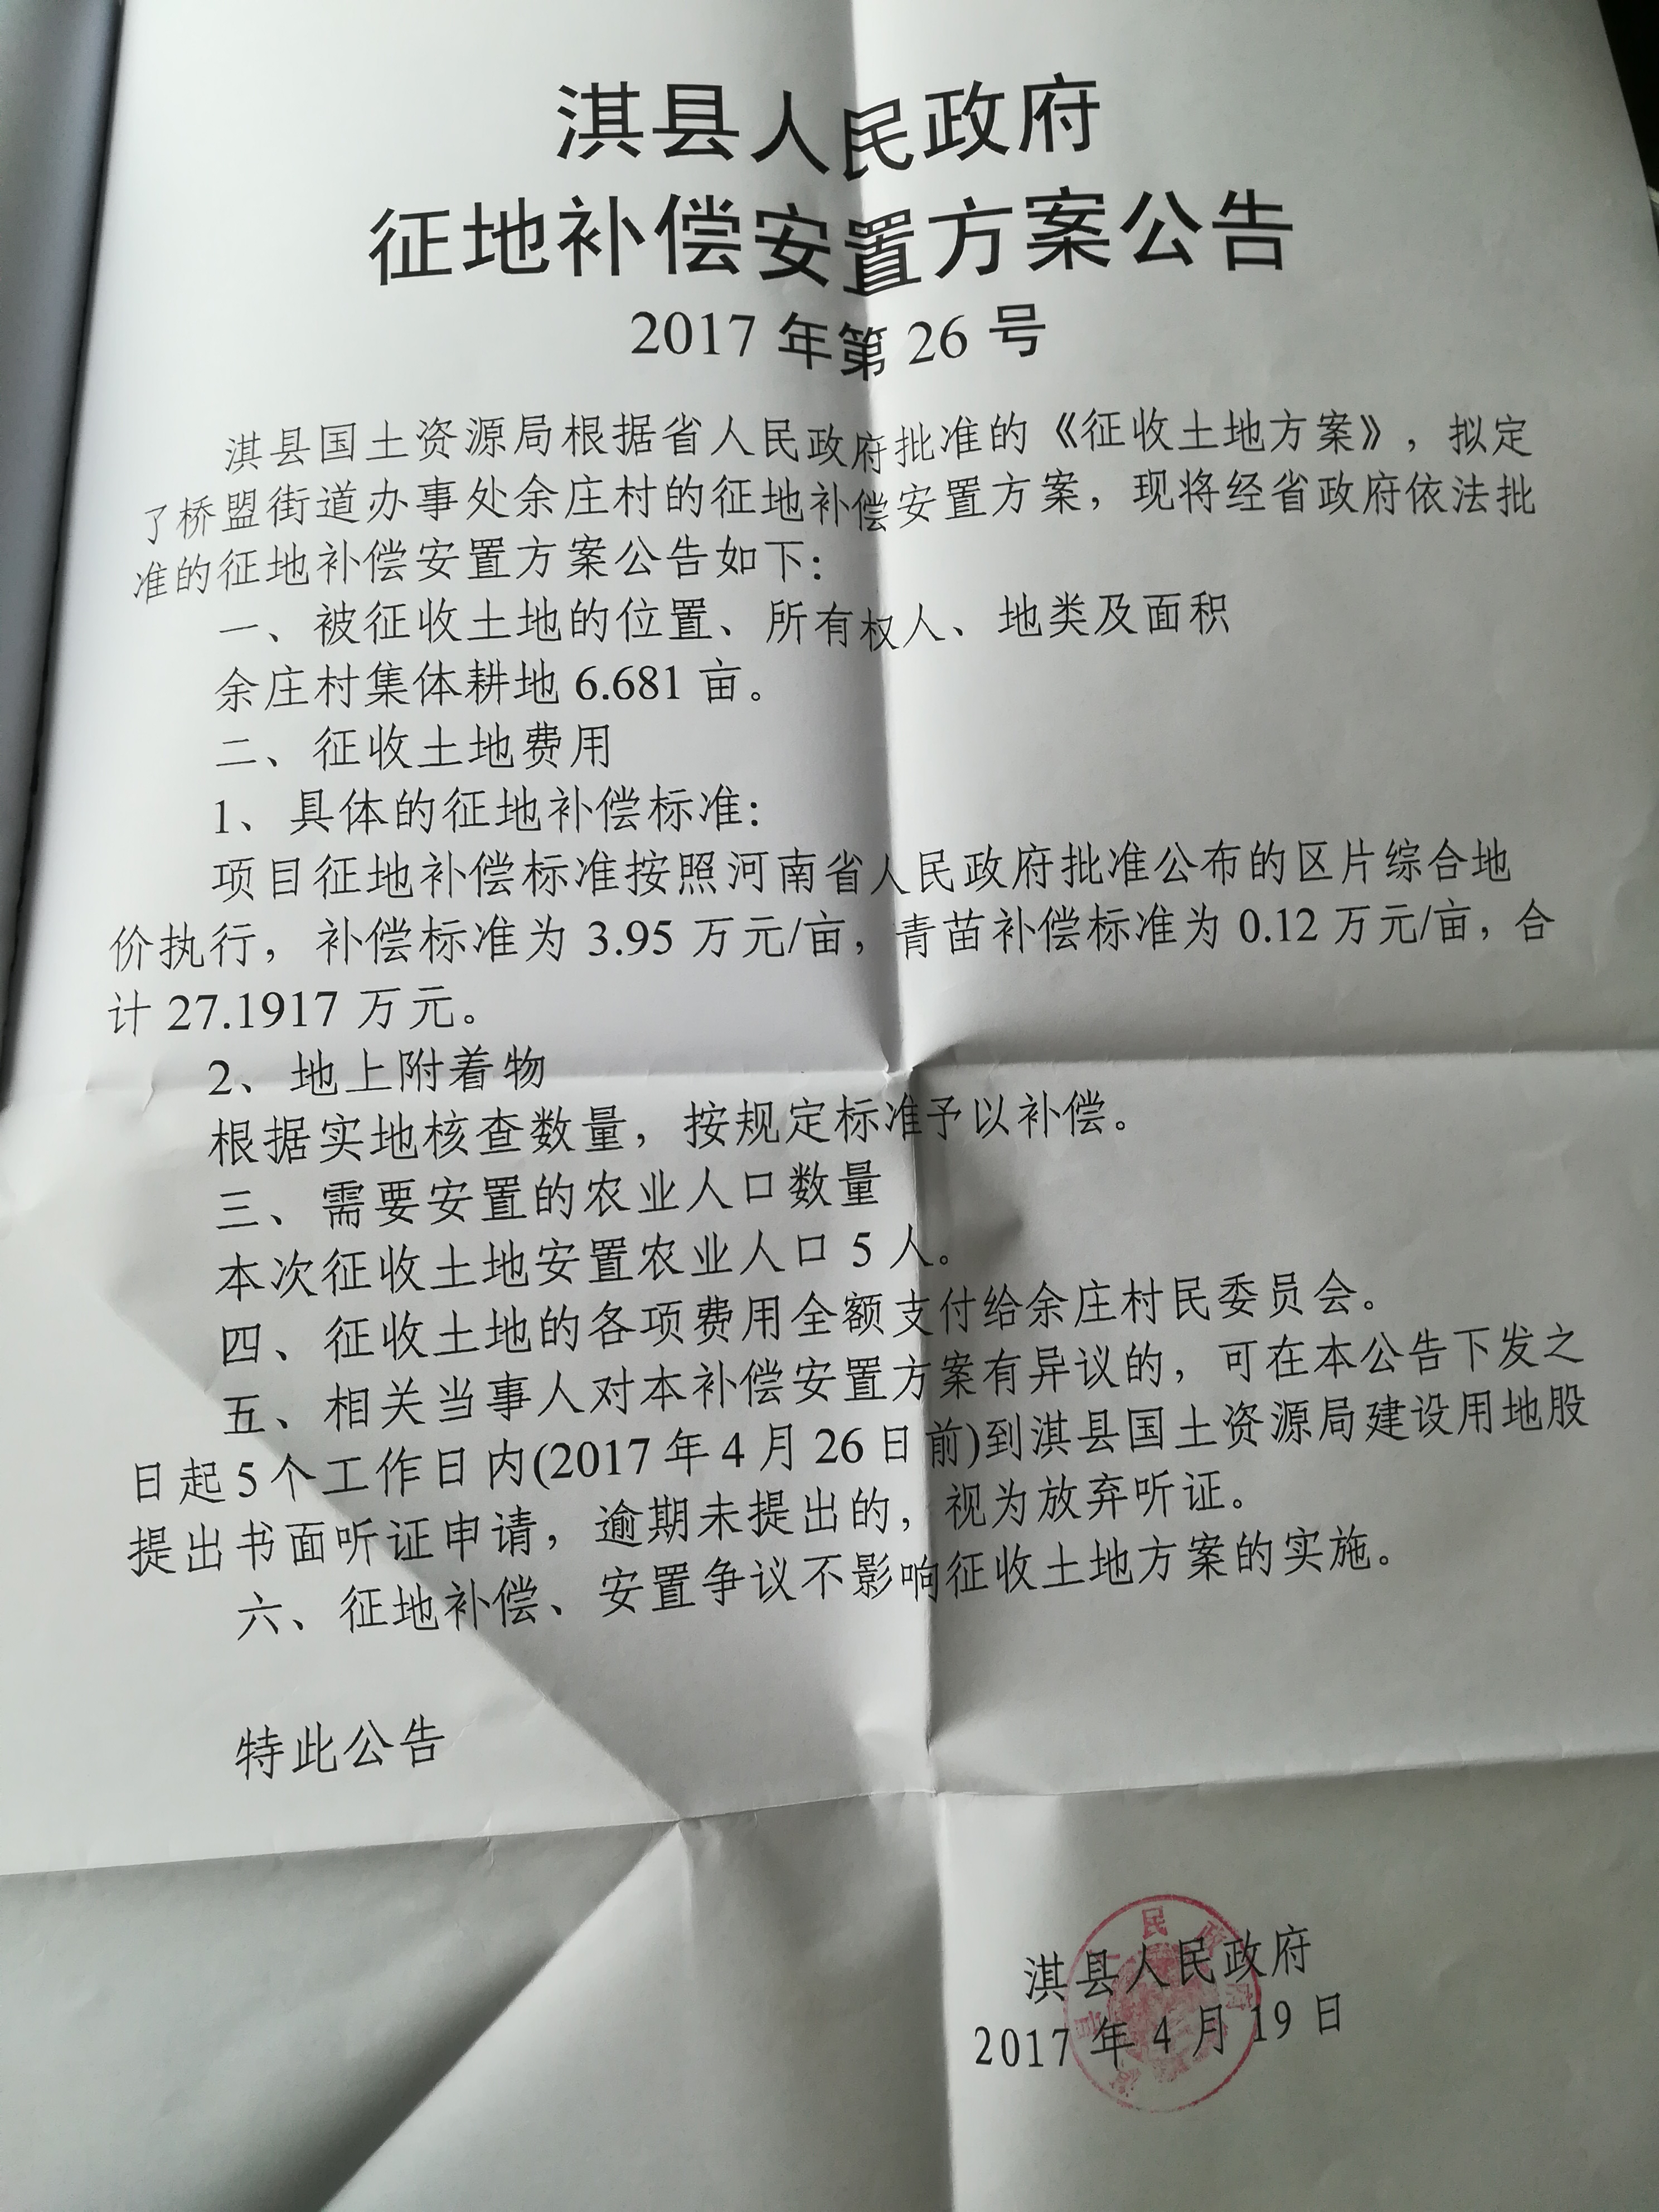 淇县人民政府
征地补偿安置方案公告
2017 年第 26 号
淇县国土资源局根据省人民政府批准的《征收土地方案》，拟定
了桥盟街道办事处余庄村的征地补偿安置方案，现将经省政府依法批
准的征地补偿安置方案公告如下：
一、被征收土地的位置、所有权人、地类及面积
余庄村集体耕地 6.681 亩。
二、征收土地费用
1、具体的征地补偿标准：
项目征地补偿标准按照河南省人民政府批准公布的区片综合地
价执行，补偿标准为 3.95 万元/亩，青苗补偿标准为 0.12 万元/亩，合
计 27.1917 万元。
2、地上附着物
根据实地核查数量，按规定标准予以补偿。
三、需要安置的农业人口数量
本次征收土地安置农业人口 5 人。
四、征收土地的各项费用全额支付给余庄村民委员会。
五、相关当事人对本补偿安置方案有异议的，可在本公告下发之
日起 5 个工作日内(2017 年 4 月 26 日前)到淇县国土资源局建设用地股
提出书面听证申请，逾期未提出的，视为放弃听证。
六、征地补偿、安置争议不影响征收土地方案的实施。
特此公告
淇县人民政府
2017 年 4 月 19 日